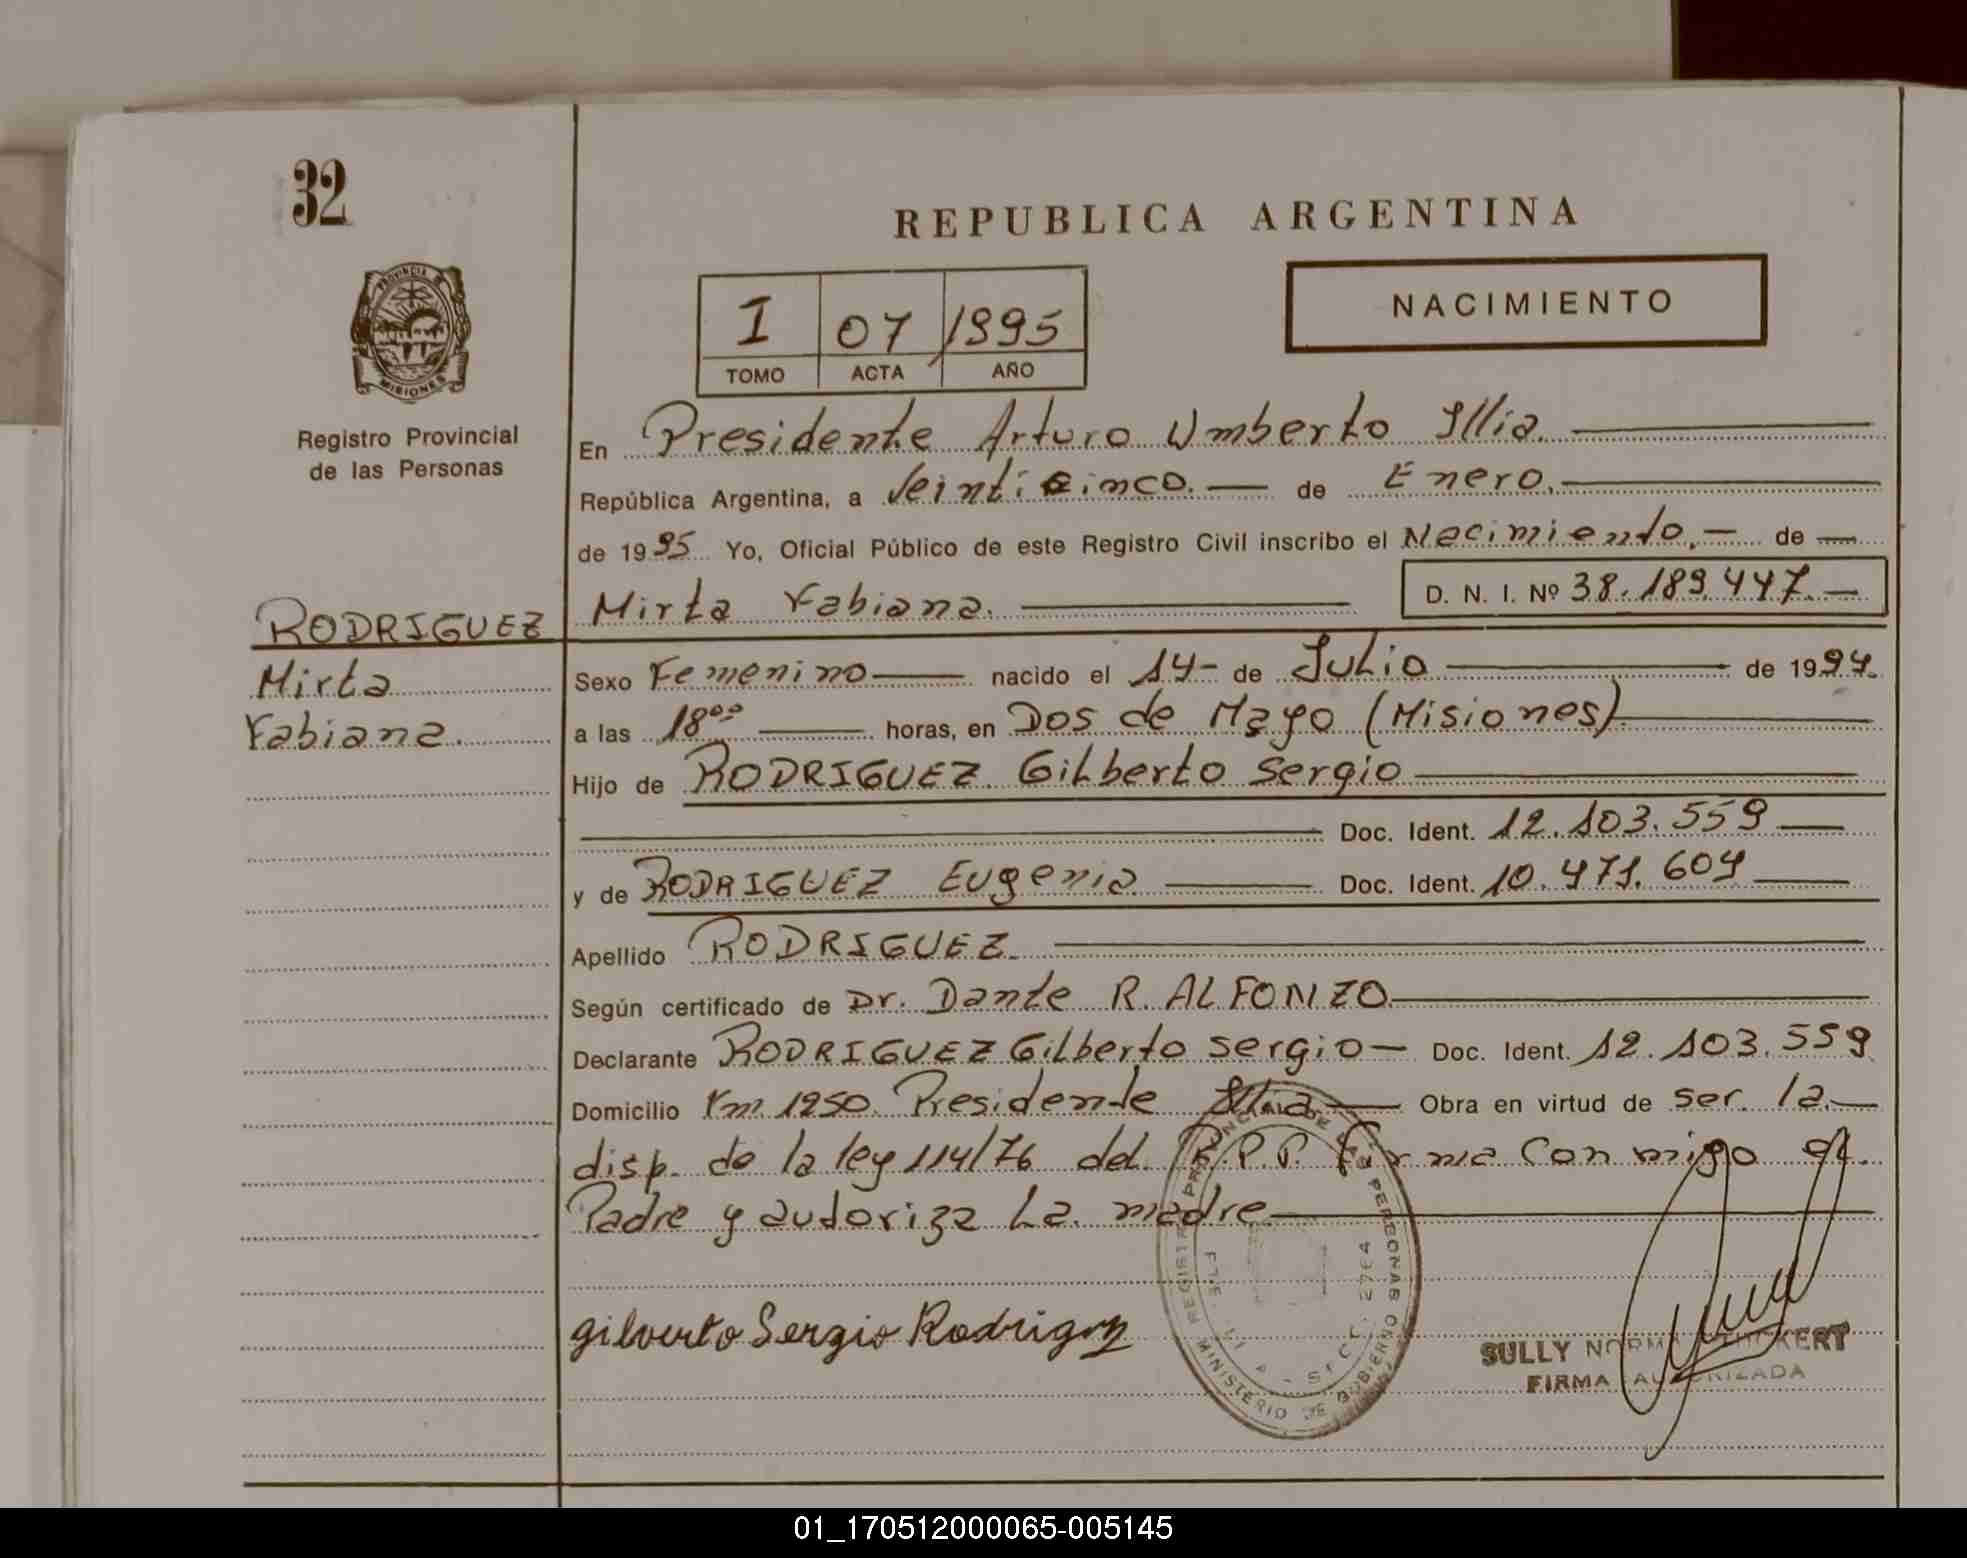 32
REPUBLICA ARGENTINA
PROVINCIA DE
MISIONES
Registro Provincial
de las Personas
I 07 1995
TOMO ACTA AÑO
NACIMIENTO
En Presidente Arturo Umberto Illia.
República Argentina, a Veinticinco. de Enero.
de 1995 Yo, Oficial Público de este Registro Civil inscribo el Nacimiento. de
Mirta Fabiana. D. N. I. Nº 38.189.447.
RODRIGUEZ
Mirta
Fabiana.
Sexo Femenino nacido el 14 de Julio de 1994.
a las 18⁰⁰ horas, en Dos de Mayo (Misiones)
Hijo de RODRIGUEZ Gilberto Sergio
Doc. Ident. 12.103.559
y de RODRIGUEZ Eugenia Doc. Ident. 10.471.604
Apellido RODRIGUEZ.
Según certificado de Dr. Dante R. ALFONZO
Declarante RODRIGUEZ Gilberto Sergio Doc. Ident. 12.103.559
Domicilio Km 1250 Presidente Illia Obra en virtud de ser. la
disp. de la ley 114/76 del R.P.P. Firma Con migo el
Padre y autoriza La madre
gilverto Sergio Rodriguez
REGISTRO PROVINCIAL DE LAS PERSONAS
MINISTERIO DE GOBIERNO
SULLY NORMA
FIRMA AUTORIZADA
01_170512000065-005145